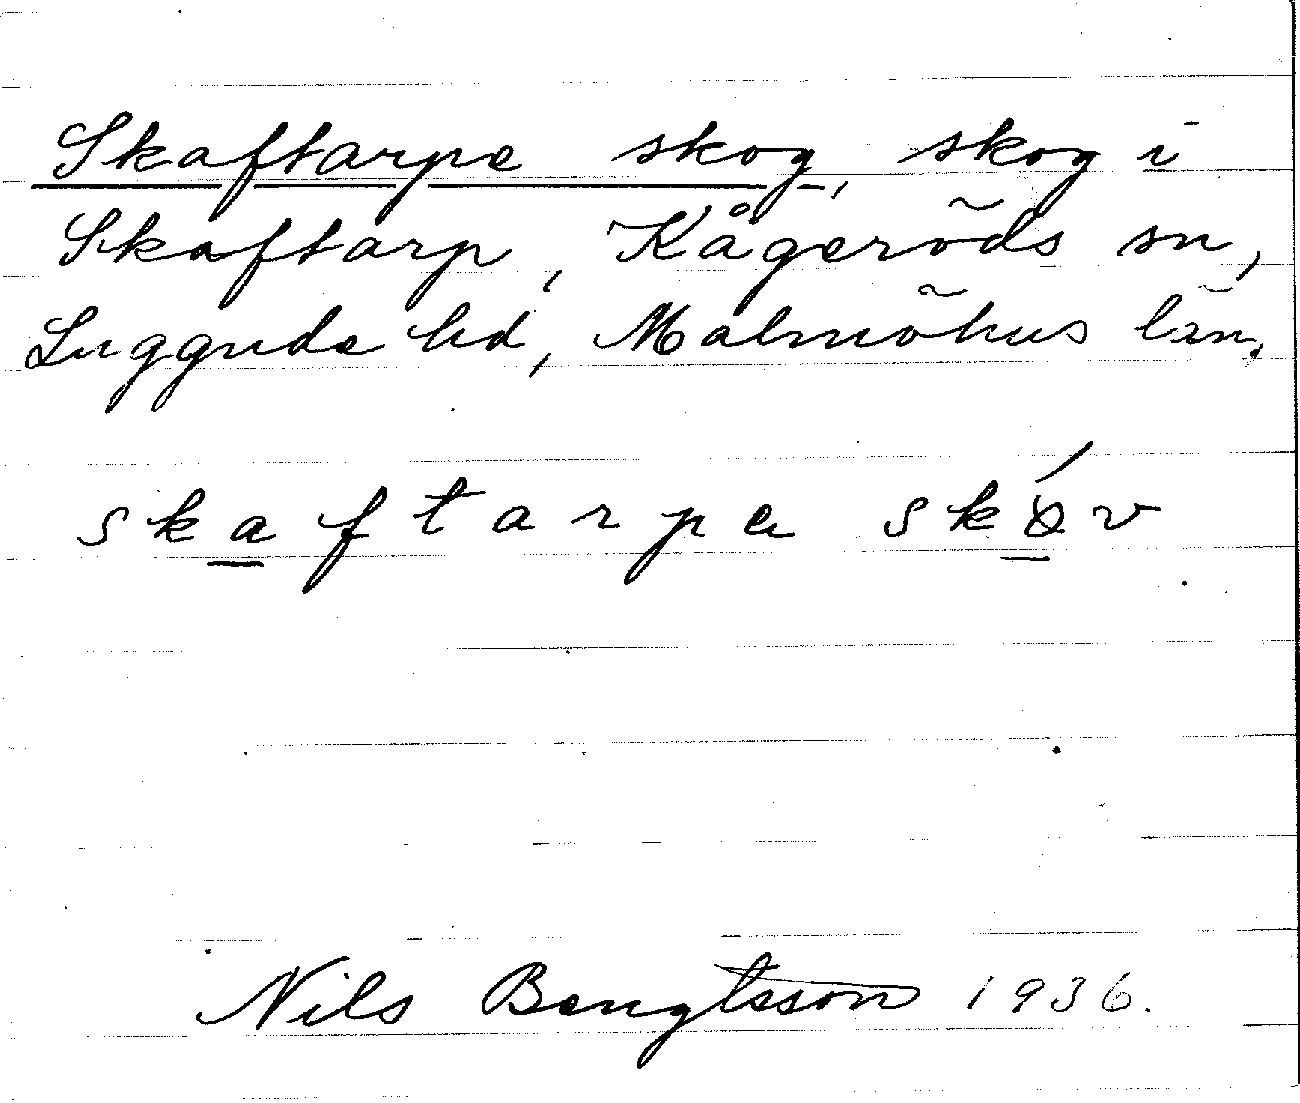 Skaftarpe skog, skog i
Skaftarp, Kågeröds sn,
Luggude hd, Malmöhus län.
skaftarpa skóv
Nils Bengtsson 1936.